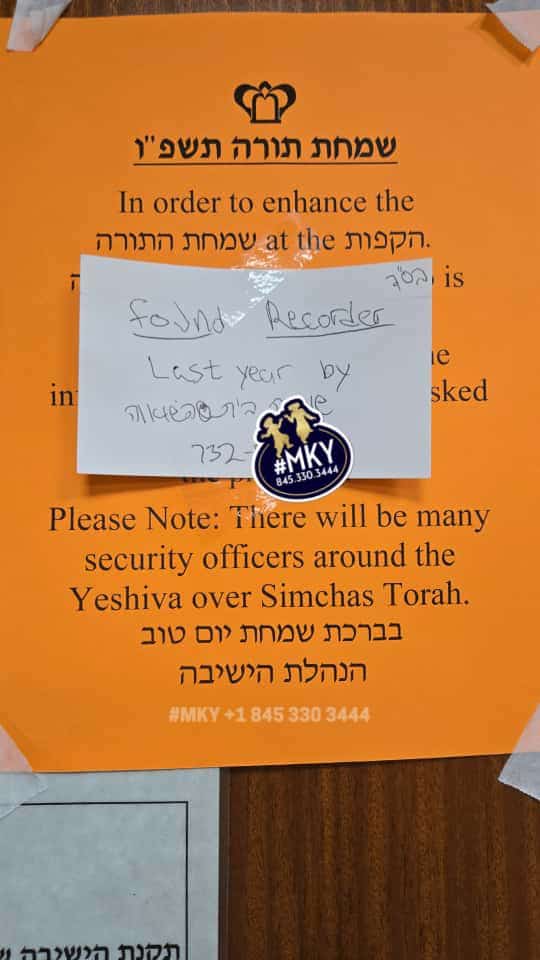 שמחת תורה תשפ"ו
In order to enhance the
הקפות at the שמחת התורה.
is
בס"ד
Found Recorder
Last year by
732-
#MKY
845.330.3444
Please Note: There will be many
security officers around the
Yeshiva over Simchas Torah.
בברכת שמחת יום טוב
הנהלת הישיבה
#MKY +1 845 330 3444
תקנת הישיבה